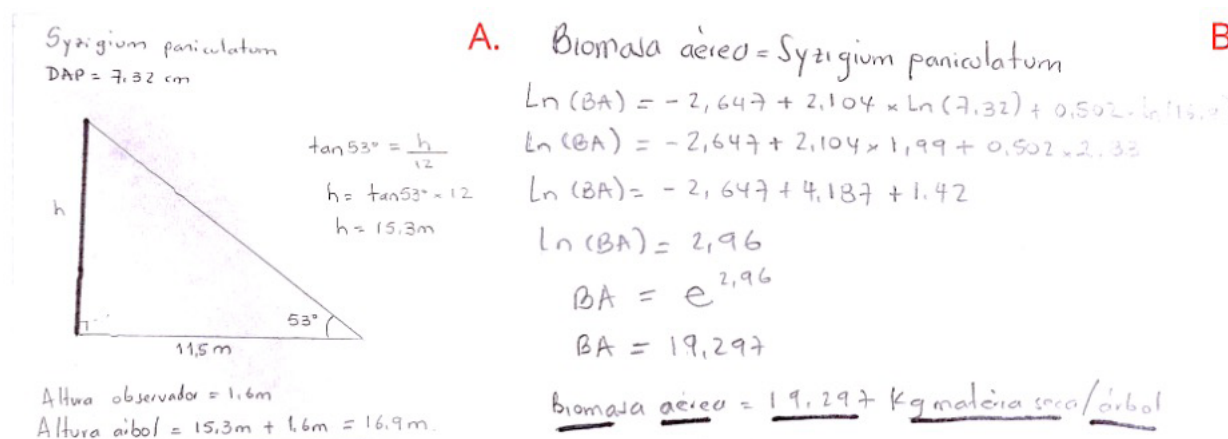 Syzigium paniculatum
DAP = 7,32 cm
tan 53° = h/12
h = tan53° × 12
h = 15.3m
h
53°
11,5 m
Altura observador = 1,6m
Altura aíbol = 15,3m + 1,6m = 16,9m.
A.
Biomasa aéreo = Syzigium paniculatum
Ln (BA) = - 2,647 + 2,104 × Ln (7,32) + 0,502
Ln (BA) = - 2,647 + 2,104 × 1,99 + 0,502 ×
Ln (BA) = - 2,647 + 4,187 + 1.42
Ln (BA) = 2,96
BA = e^2,96
BA = 19,297
Biomasa aérea = 19,297 Kg matéria seca/árbol
B